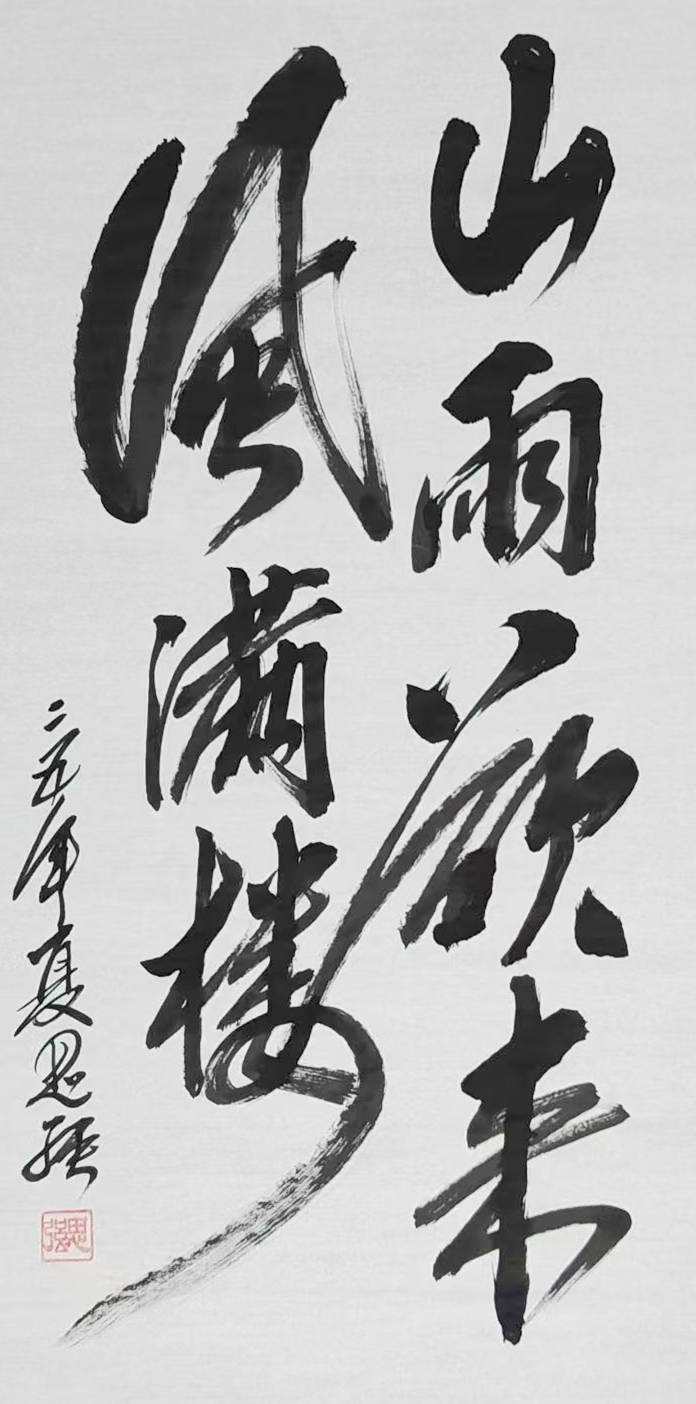 山雨欲来
风满楼
二五年夏思强
思强